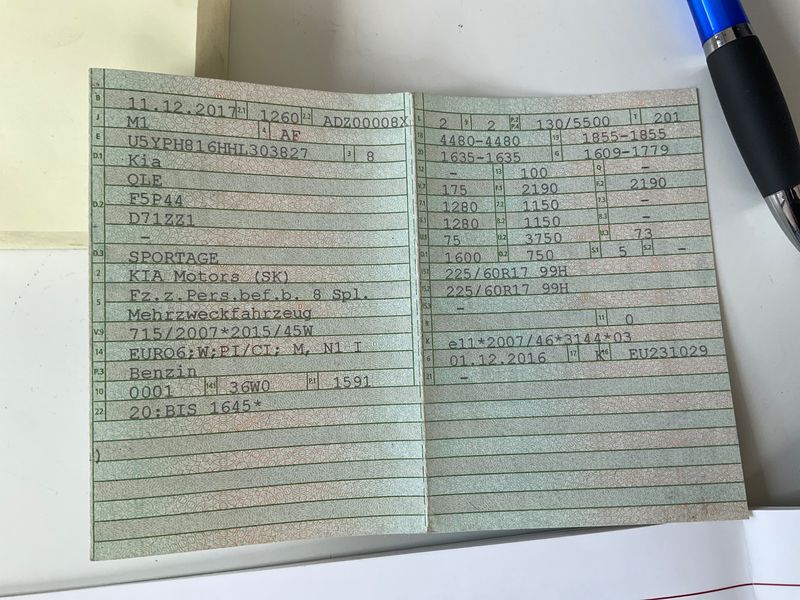 B 11.12.2017 2.1 1260 2.2 ADZ00008X
J M1 4 AF
E U5YPH816HHL303827 3 8
D.1 Kia
QLE
D.2 F5P44
D71ZZ1
-
D.3 SPORTAGE
2 KIA Motors (SK)
5 Fz.z.Pers.bef.b. 8 Spl.
Mehrzweckfahrzeug
V.9 715/2007*2015/45W
14 EURO6;W;PI/CI; M, N1 I
P.3 Benzin
10 0001 14.1 36W0 P.1 1591
22 20:BIS 1645*
)
L 2 9 2 P.2 P.4 130/5500 T 201
18 4480-4480 19 1855-1855
20 1635-1635 G 1609-1779
12 - 13 100 Q -
V.7 175 F.1 2190 F.2 2190
7.1 1280 7.2 1150 7.3 -
8.1 1280 8.2 1150 8.3 -
U.1 75 U.2 3750 U.3 73
O.1 1600 O.2 750 S.1 5 S.2 -
15.1 225/60R17 99H
15.2 225/60R17 99H
15.3 -
R 11 0
K e11*2007/46*3144*03
6 01.12.2016 17 K 16 EU231029
21 -